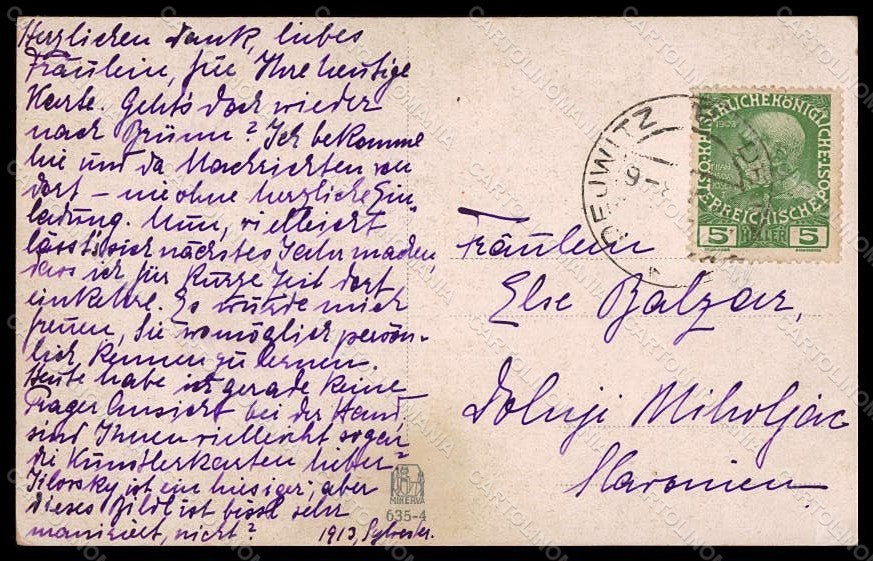 Herzlichen Dank, liebes
Fräulein, für Ihre heutige
Karte. Geht's doch wieder
nach Brünn? Ich bekomme
hie und da Nachrichten von
dort – nie ohne herzliche Ein-
ladung. Nun, vielleicht
lässt sich nächstes Jahr machen,
dass ich für kurze Zeit dort
einkehre. Es würde mich
freuen, Sie womöglich persön-
lich kennen zu lernen.
Heute habe ich gerade keine
Prager Ansicht bei der Hand,
sind Ihnen vielleicht sogar
die Künstlerkarten lieber?
Jilovsky ist ein hiesiger; aber
dieses Bild ist bissl sehr
manieriert, nicht?
1913, Sylvester.
Fräulein
Else Balzar,
Dolnji Miholjac
Slavonien
DEJWITZ
9
KAISERLICHE KÖNIGLICHE
ÖSTERREICHISCHE POST
5 HELLER 5
MINERVA
635-4
CARTOLINOMANIA